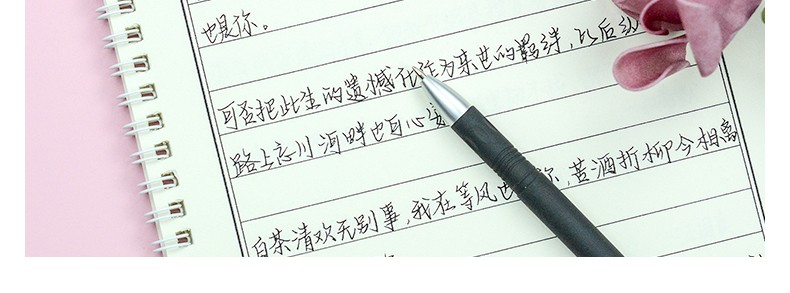 也是你。
可否把此生的遗憾化作为来世的羁绊，此后
路上忘川河畔也自心
白茶清欢无别事，我在等风也 你，苦酒折柳今相离